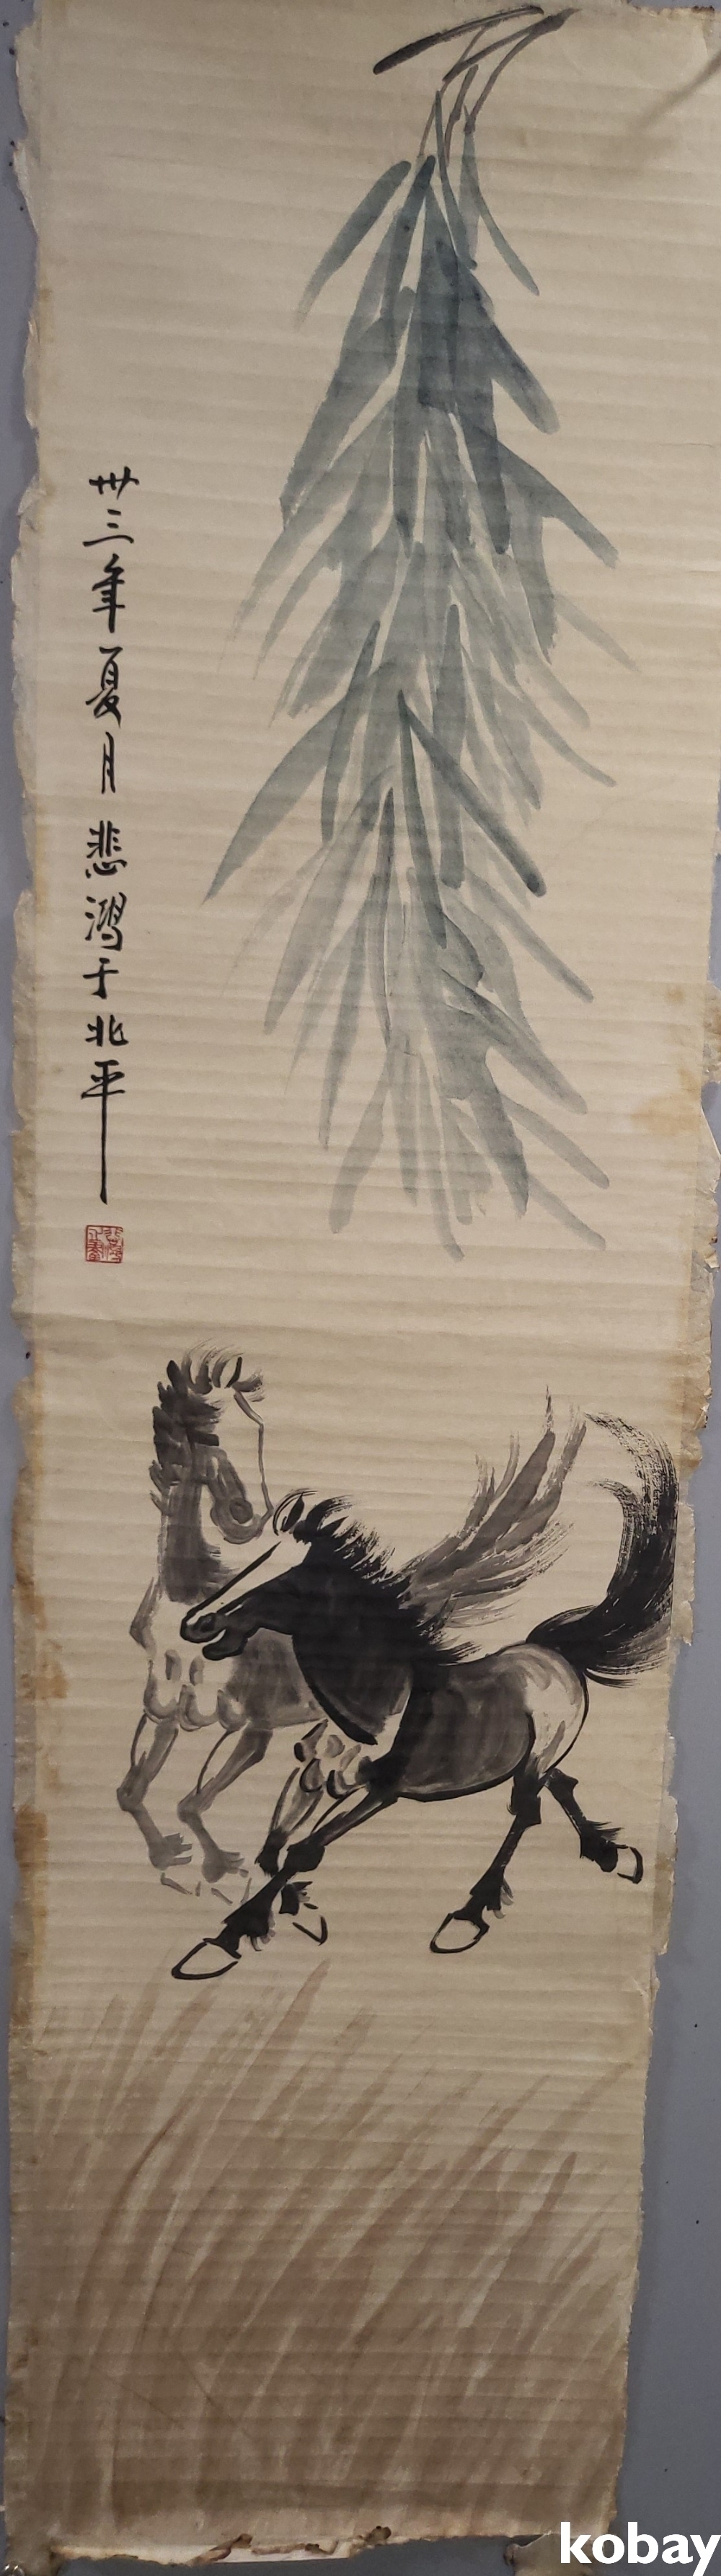 卅三年夏月悲鸿于北平
kobay